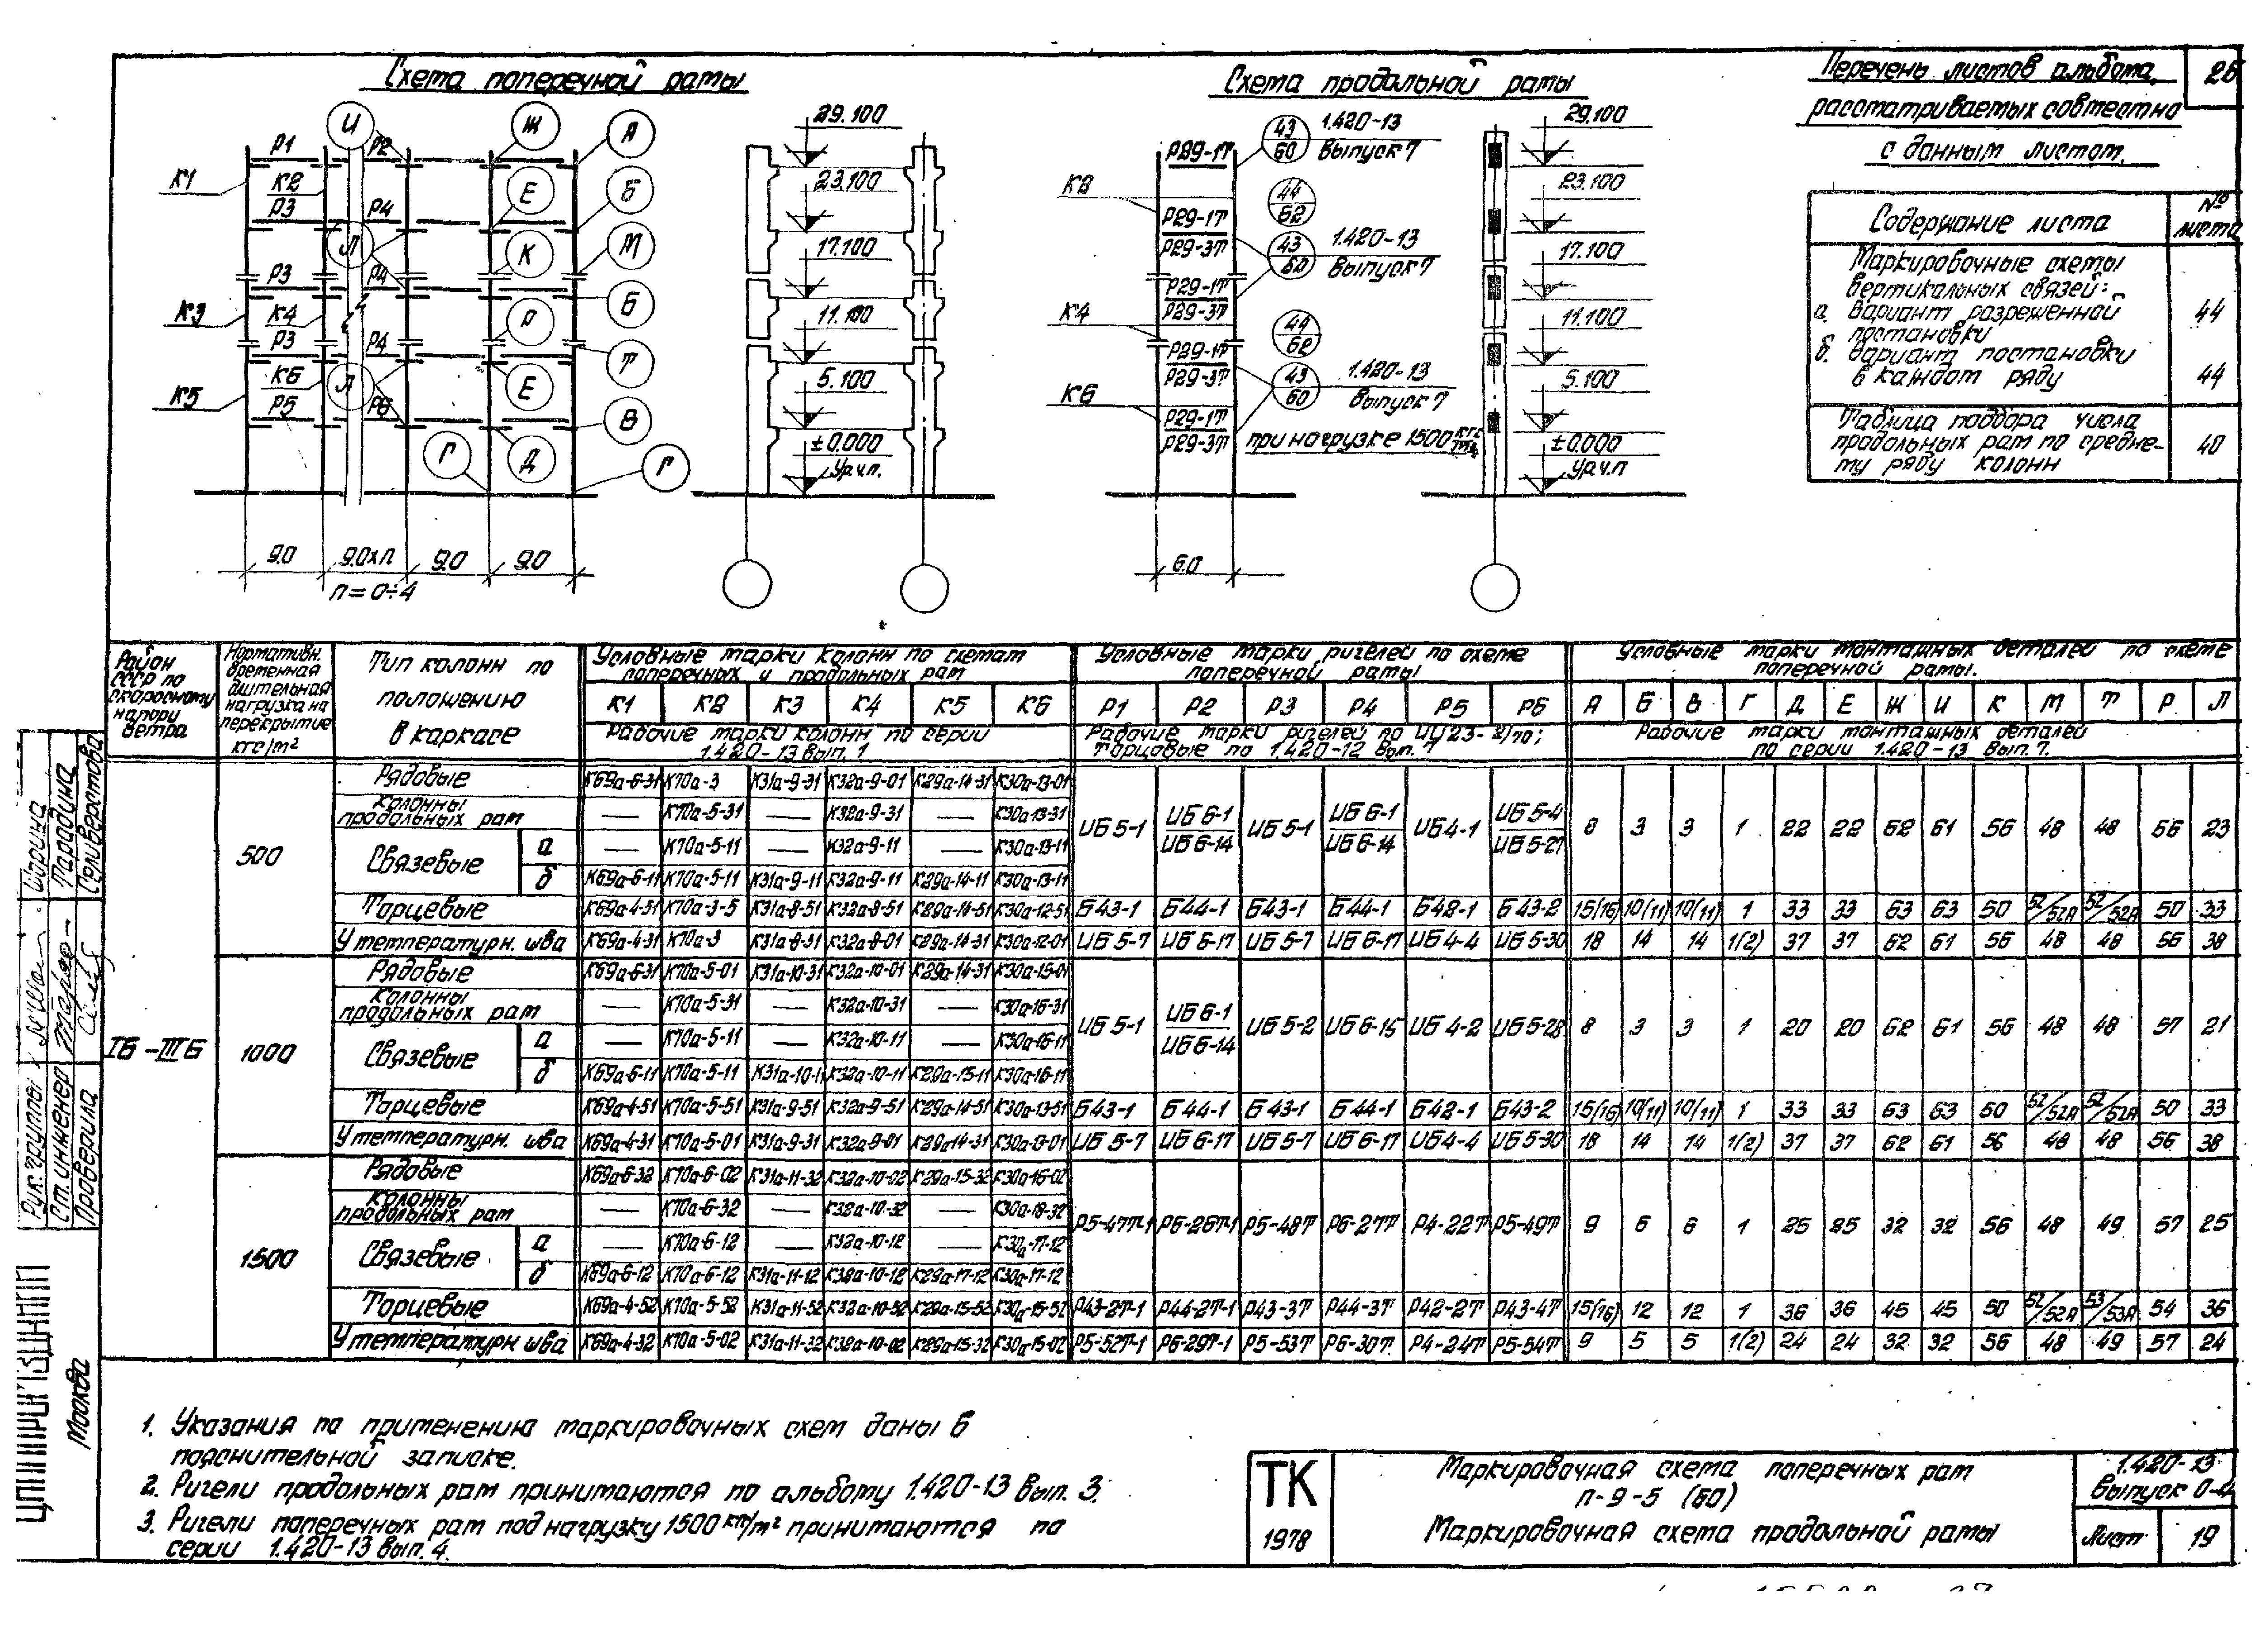 Схема поперечной рамы
Схема продольной рамы
Перечень листов альбома,
рассматриваемых совместно
с данным листом.
26
И Ж А
Р1 Р2
К1 К2
Е Б
Р3 Р4
Л К М
Р3 Р4
К3 К4
Р Б
Р3 Р4
К5 К6
Л Е Т
Р5 Р6
Г Д В
Г
9.0 9.0хп 9.0 9.0
п=0÷4
29.100
23.100
17.100
11.100
5.100
±0.000
Ур.ч.п.
К2
К4
К6
Р29-1т
Р29-1т
Р29-3т
Р29-1т
Р29-3т
Р29-1т
Р29-3т
Р29-1т
Р29-3т
43/60 1.420-13
Выпуск 7
44/62
43/60 1.420-13
Выпуск 7
44/62
43/60 1.420-13
Выпуск 7
при нагрузке 1500 кгс/м2
6.0
29.100
23.100
17.100
11.100
5.100
±0.000
Ур.ч.п
Содержание листа № листа
Маркировочные схемы
вертикальных связей:
а. вариант разреженной 44
постановки
б. вариант постановки
в каждом ряду 44
Таблица подбора числа
продольных рам по средне-
му ряду колонн 40
Район СССР по скоростному напору ветра
Нормативн. временная длительная нагрузка на перекрытие кгс/м²
Тип колонн по положению в каркасе
Условные марки колонн по схемам поперечных и продольных рам
К1 К2 К3 К4 К5 К6
Рабочие марки колонн по серии 1.420-13 вып. 1
Условные марки ригелей по схеме поперечной рамы
Р1 Р2 Р3 Р4 Р5 Р6
Рабочие марки ригелей по ИИ23-2/70; торцовые по 1.420-12 вып. 7
Условные марки монтажных деталей по схеме поперечной рамы.
А Б В Г Д Е Ж И К М Т Р Л
Рабочие марки монтажных деталей по серии 1.420-13 вып. 7.
IБ-IIIБ
500
Рядовые К69а-6-31 К70а-3 К31а-9-31 К32а-9-01 К29а-14-31 К30а-13-01
колонны продольных рам — К70а-5-31 — К32а-9-31 — К30а-13-31
Связевые а — К70а-5-11 — К32а-9-11 — К30а-13-11
б К69а-6-11 К70а-5-11 К31а-9-11 К32а-9-11 К29а-14-11 К30а-13-11
ИБ5-1 ИБ6-1/ИБ6-14 ИБ5-1 ИБ6-1/ИБ6-14 ИБ4-1 ИБ5-4/ИБ5-27 8 3 3 1 22 22 62 61 56 48 48 56 23
Торцевые К69а-4-51 К70а-3-5 К31а-8-51 К32а-8-51 К29а-14-51 К30а-12-51 Б43-1 Б44-1 Б43-1 Б44-1 Б42-1 Б43-2 15(16) 10(11) 10(11) 1 33 33 63 63 50 52/52А 52/52А 50 33
У температурн. шва К69а-4-31 К70а-3 К31а-8-31 К32а-8-01 К29а-14-31 К30а-12-01 ИБ5-7 ИБ6-17 ИБ5-7 ИБ6-17 ИБ4-4 ИБ5-30 18 14 14 1(2) 37 37 62 61 56 48 48 56 38
1000
Рядовые К69а-6-31 К70а-5-01 К31а-10-31 К32а-10-01 К29а-14-31 К30а-15-01
колонны продольных рам — К70а-5-31 — К32а-10-31 — К30а-16-31
Связевые а — К70а-5-11 — К32а-10-11 — К30а-16-11
б К69а-6-11 К70а-5-11 К31а-10-11 К32а-10-11 К29а-15-11 К30а-16-11
ИБ5-1 ИБ6-1/ИБ6-14 ИБ5-2 ИБ6-15 ИБ4-2 ИБ5-28 8 3 3 1 20 20 62 61 56 48 48 57 21
Торцевые К69а-4-51 К70а-5-51 К31а-9-51 К32а-9-51 К29а-14-51 К30а-13-51 Б43-1 Б44-1 Б43-1 Б44-1 Б42-1 Б43-2 15(16) 10(11) 10(11) 1 33 33 63 63 50 52/52А 52/52А 50 33
У температурн. шва К69а-4-31 К70а-5-01 К31а-9-31 К32а-9-01 К29а-14-31 К30а-13-01 ИБ5-7 ИБ6-17 ИБ5-7 ИБ6-17 ИБ4-4 ИБ5-30 18 14 14 1(2) 37 37 62 61 56 48 48 56 38
1500
Рядовые К69а-6-32 К70а-6-02 К31а-11-32 К32а-10-02 К29а-15-32 К30а-16-02
колонны продольных рам — К70а-6-32 — К32а-10-32 — К30а-18-32
Связевые а — К70а-6-12 — К32а-10-12 — К30а-17-12
б К69а-6-12 К70а-6-12 К31а-11-12 К32а-10-12 К29а-17-12 К30а-17-12
Р5-47т-1 Р6-26т-1 Р5-48т Р6-27т Р4-22т Р5-49т 9 6 6 1 25 25 32 32 56 48 49 57 25
Торцевые К69а-4-52 К70а-5-52 К31а-11-52 К32а-10-52 К29а-15-52 К30а-15-52 Р43-2т-1 Р44-2т-1 Р43-3т Р44-3т Р42-2т Р43-4т 15(16) 12 12 1 36 36 45 45 50 52/52А 53/53А 54 36
У температурн шва К69а-4-32 К70а-5-02 К31а-11-32 К32а-10-02 К29а-15-32 К30а-15-02 Р5-52т-1 Р6-29т-1 Р5-53т Р6-30т Р4-24т Р5-54т 9 5 5 1(2) 24 24 32 32 56 48 49 57 24
1. Указания по применению маркировочных схем даны в
пояснительной записке.
2. Ригели продольных рам принимаются по альбому 1.420-13 вып. 3.
3. Ригели поперечных рам под нагрузку 1500 кгс/м² принимаются по
серии 1.420-13 вып. 4.
ТК
1978
Маркировочная схема поперечных рам
п-9-5 (60)
Маркировочная схема продольной рамы
1.420-13
Выпуск 0-4
Лист 19
Рук. группы Шорина
Ст. инженер Парадина
Проверила Селиверстова
ЦНИИПРОМЗДАНИЙ
Москва